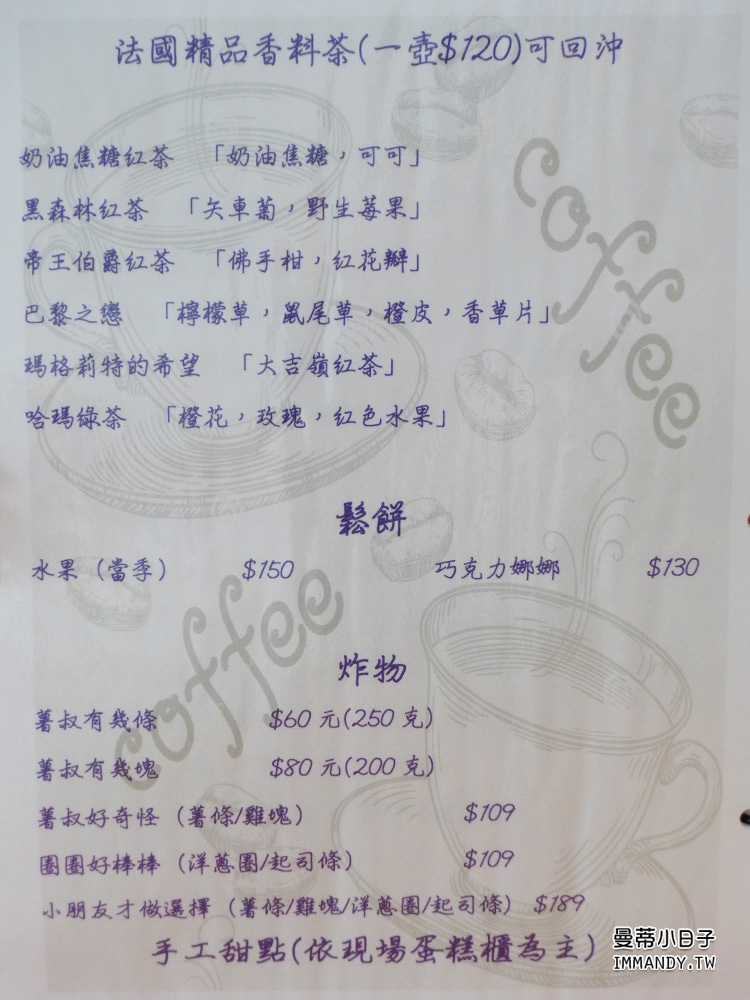 法國精品香料茶(一壺$120)可回沖
奶油焦糖紅茶 「奶油焦糖，可可」
黑森林紅茶 「矢車菊，野生莓果」
帝王伯爵紅茶 「佛手柑，紅花瓣」
巴黎之戀 「檸檬草，鼠尾草，橙皮，香草片」
瑪格莉特的希望 「大吉嶺紅茶」
哈瑪綠茶 「橙花，玫瑰，紅色水果」
coffee
鬆餅
水果（當季） $150 巧克力娜娜 $130
coffee
炸物
薯叔有幾條 $60 元(250 克)
薯叔有幾塊 $80 元(200 克)
薯叔好奇怪（薯條/雞塊） $109
圈圈好棒棒（洋蔥圈/起司條） $109
小朋友才做選擇（薯條/雞塊/洋蔥圈/起司條） $189
手工甜點(依現場蛋糕櫃為主)
曼蒂小日子
IMMANDY.TW